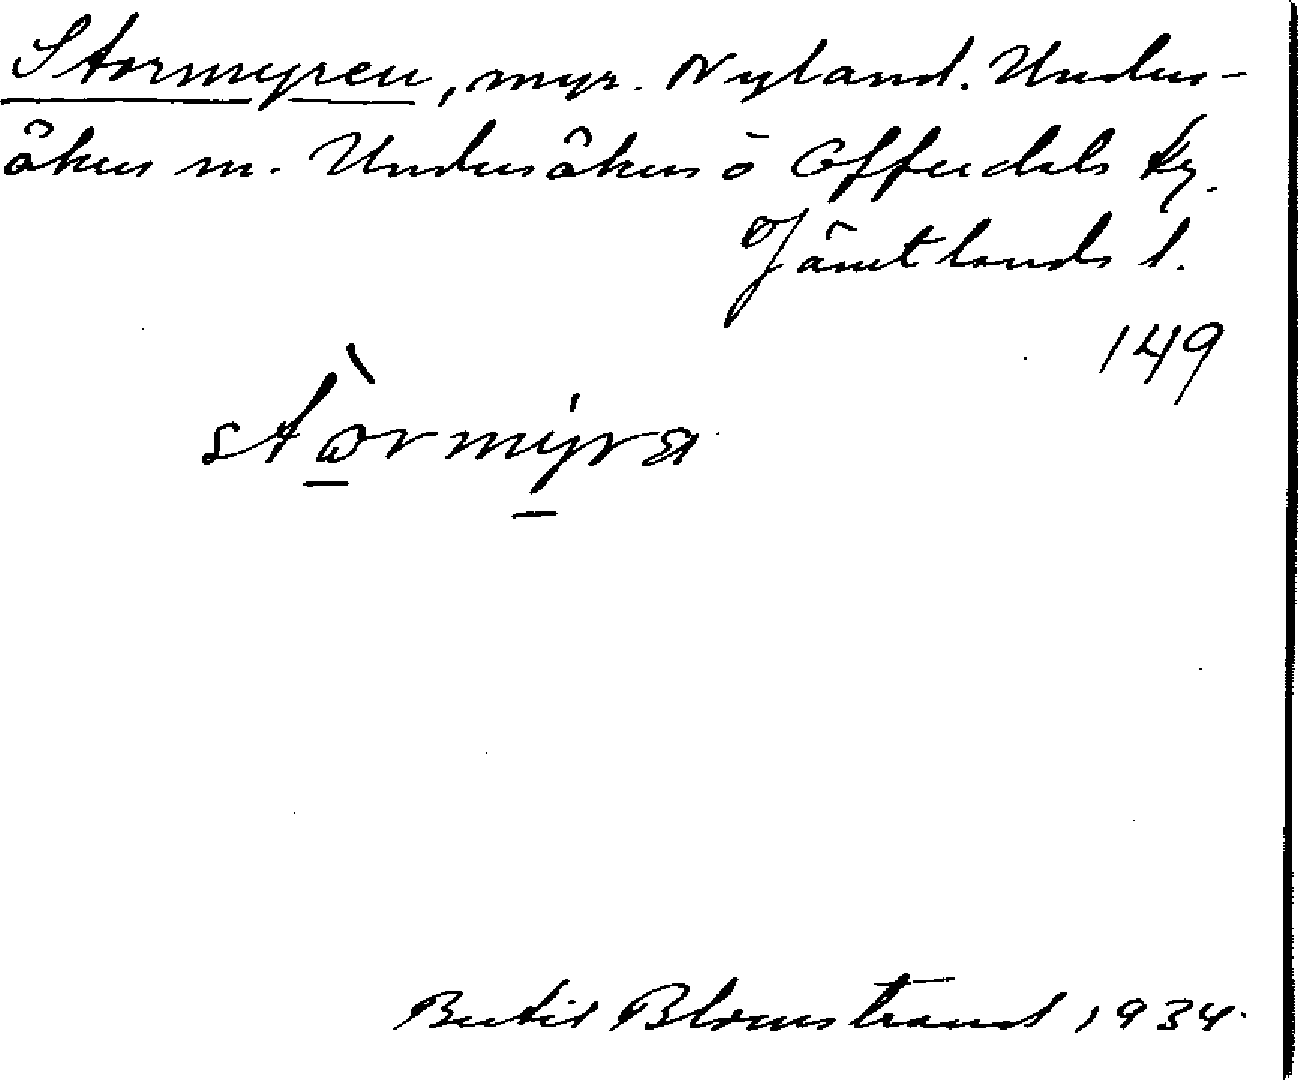 Stormyren, myr. Nyland. Unders-
åkers sn. Undersåkers o Offerdals tg.
Jämtlands l.
149
Bertil Blomstrand 1934.